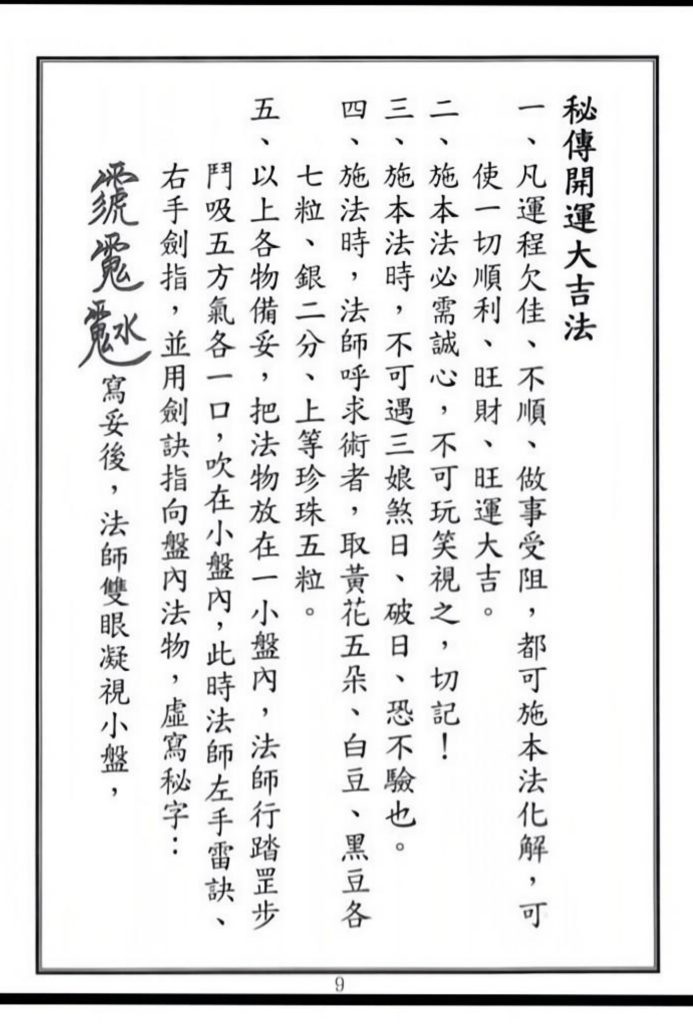 秘傳開運大吉法
一、凡運程欠佳、不順、做事受阻，都可施本法化解，可
使一切順利、旺財、旺運大吉。
二、施本法必需誠心，不可玩笑視之，切記！
三、施本法時，不可遇三娘煞日、破日、恐不驗也。
四、施法時，法師呼求術者，取黃花五朵、白豆、黑豆各
七粒、銀二分、上等珍珠五粒。
五、以上各物備妥，把法物放在一小盤內，法師行踏罡步
鬥吸五方氣各一口，吹在小盤內，此時法師左手雷訣、
右手劍指，並用劍訣指向盤內法物，虛寫秘字：
寫妥後，法師雙眼凝視小盤，
9